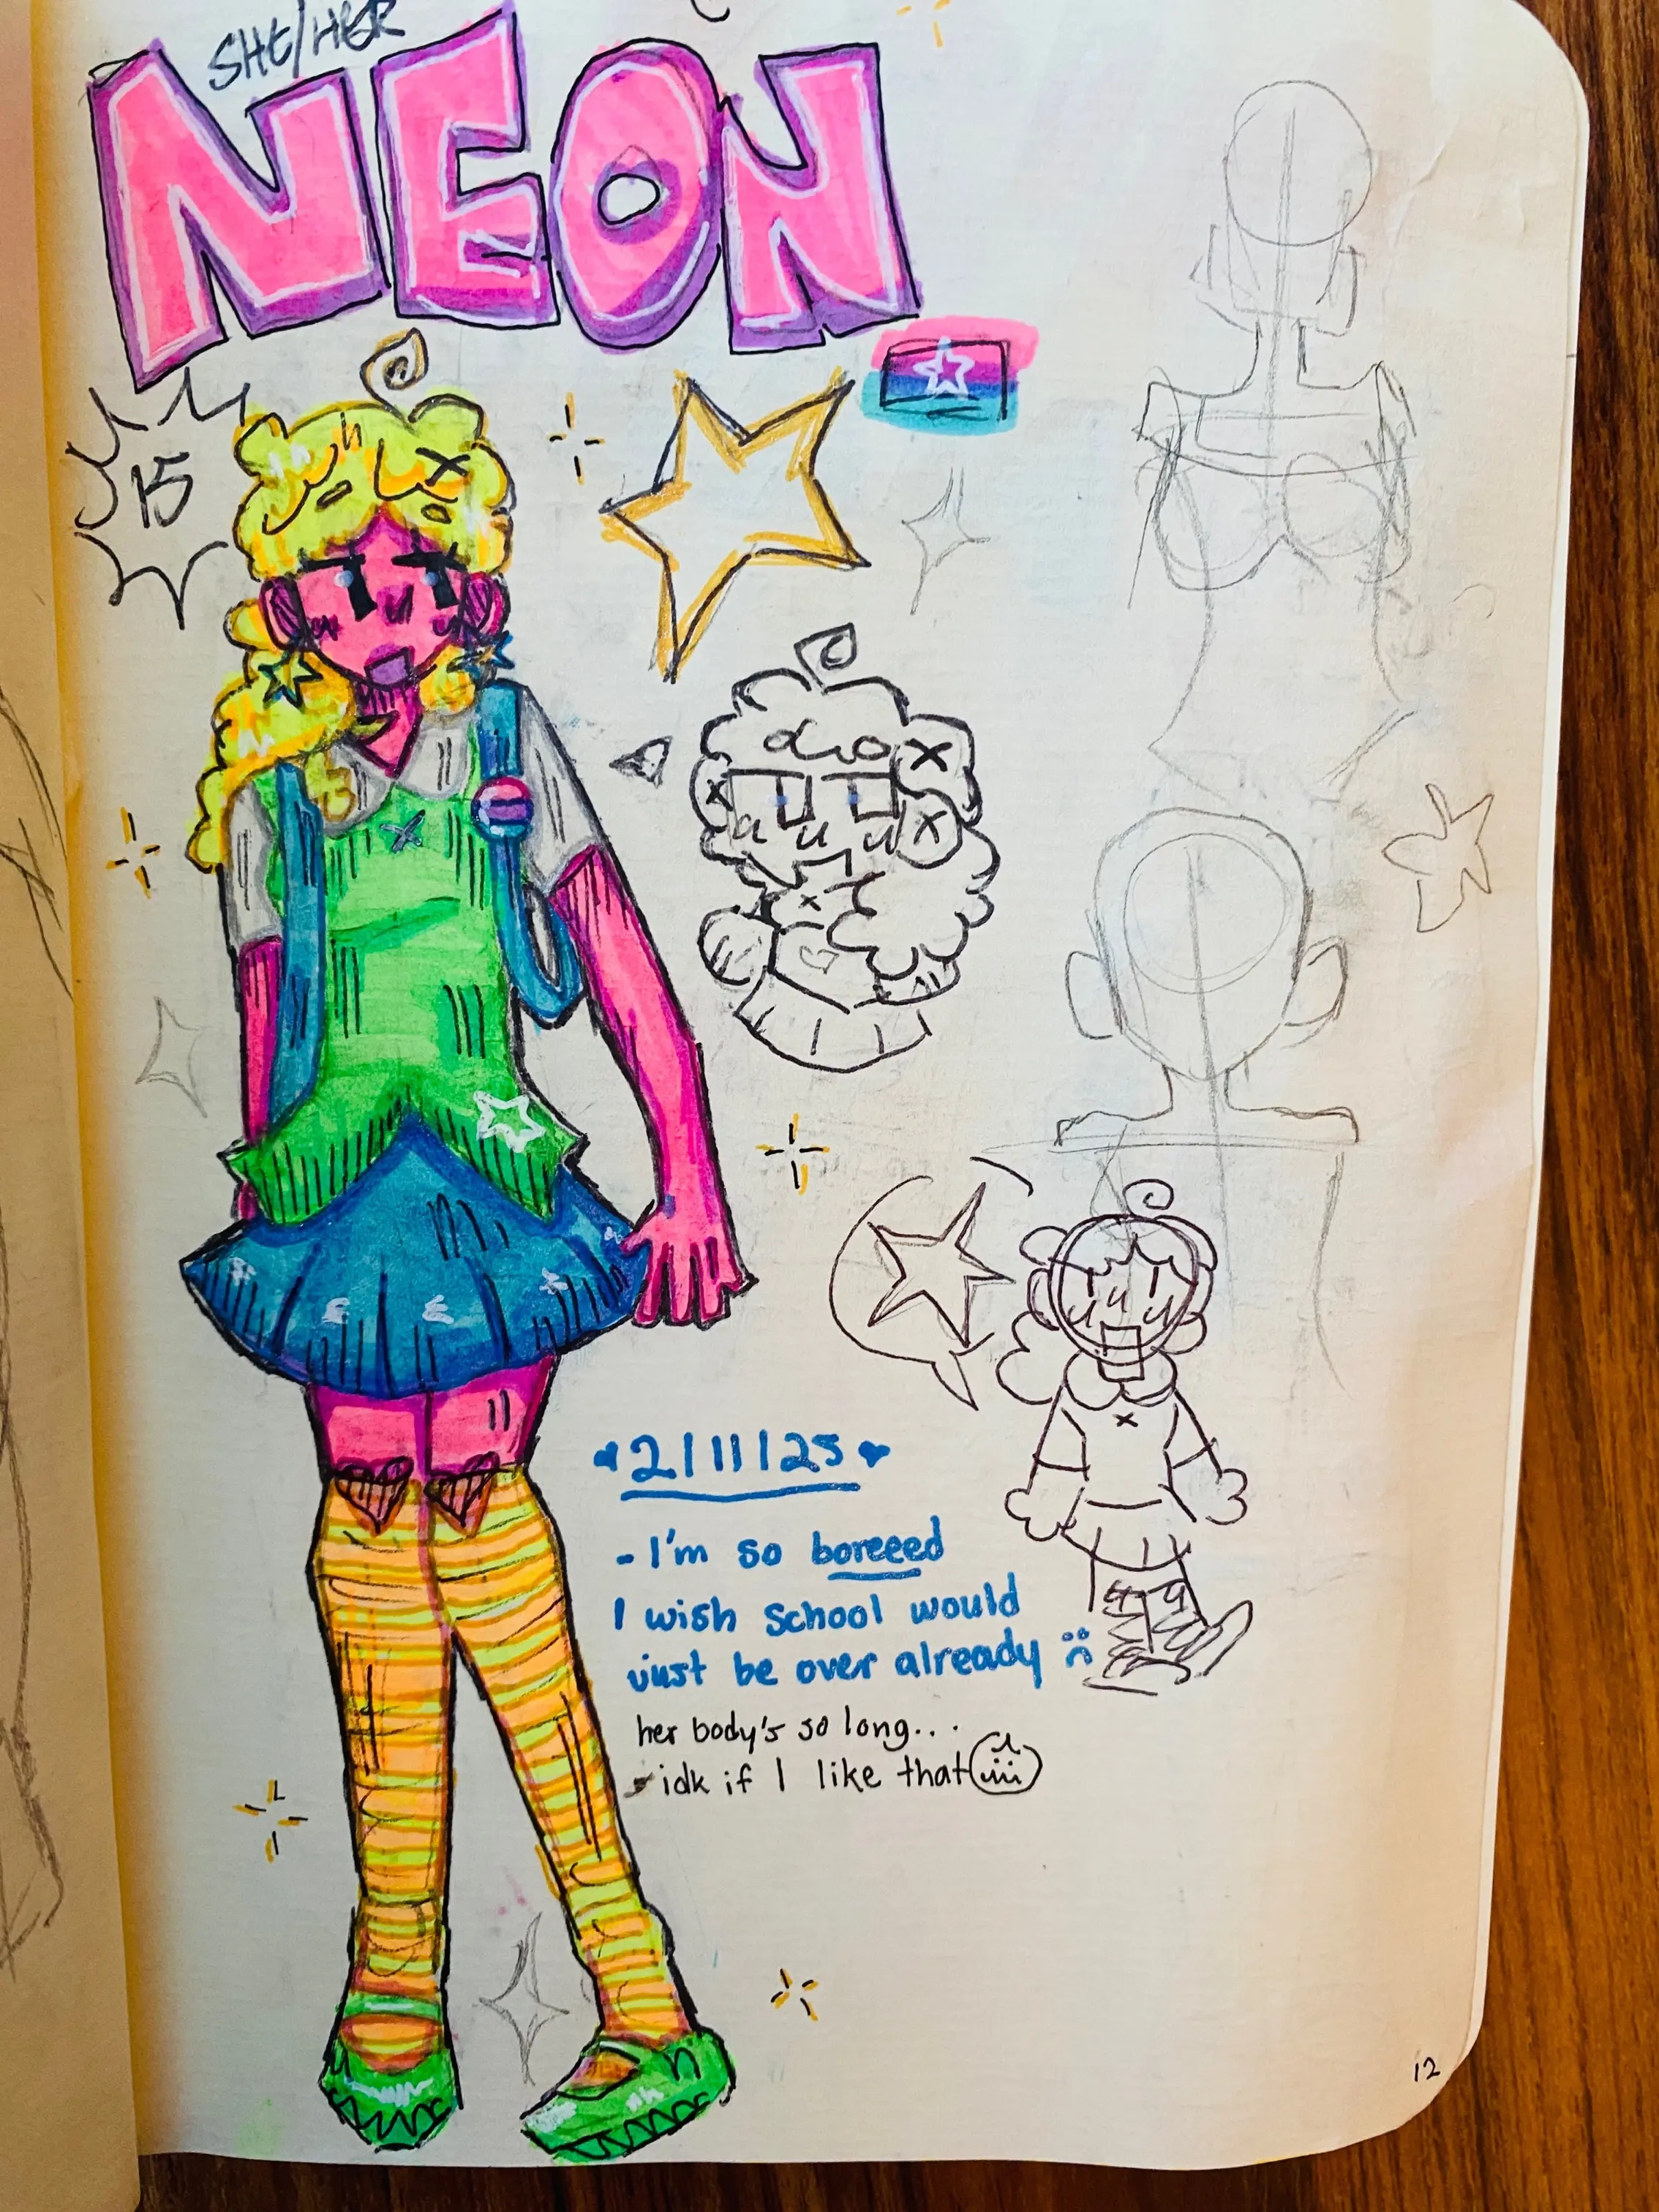 SHE/HER
NEON
15
2/11/25
- I'm so boreeed
I wish school would
just be over already :(
her body's so long...
- idk if I like that
12